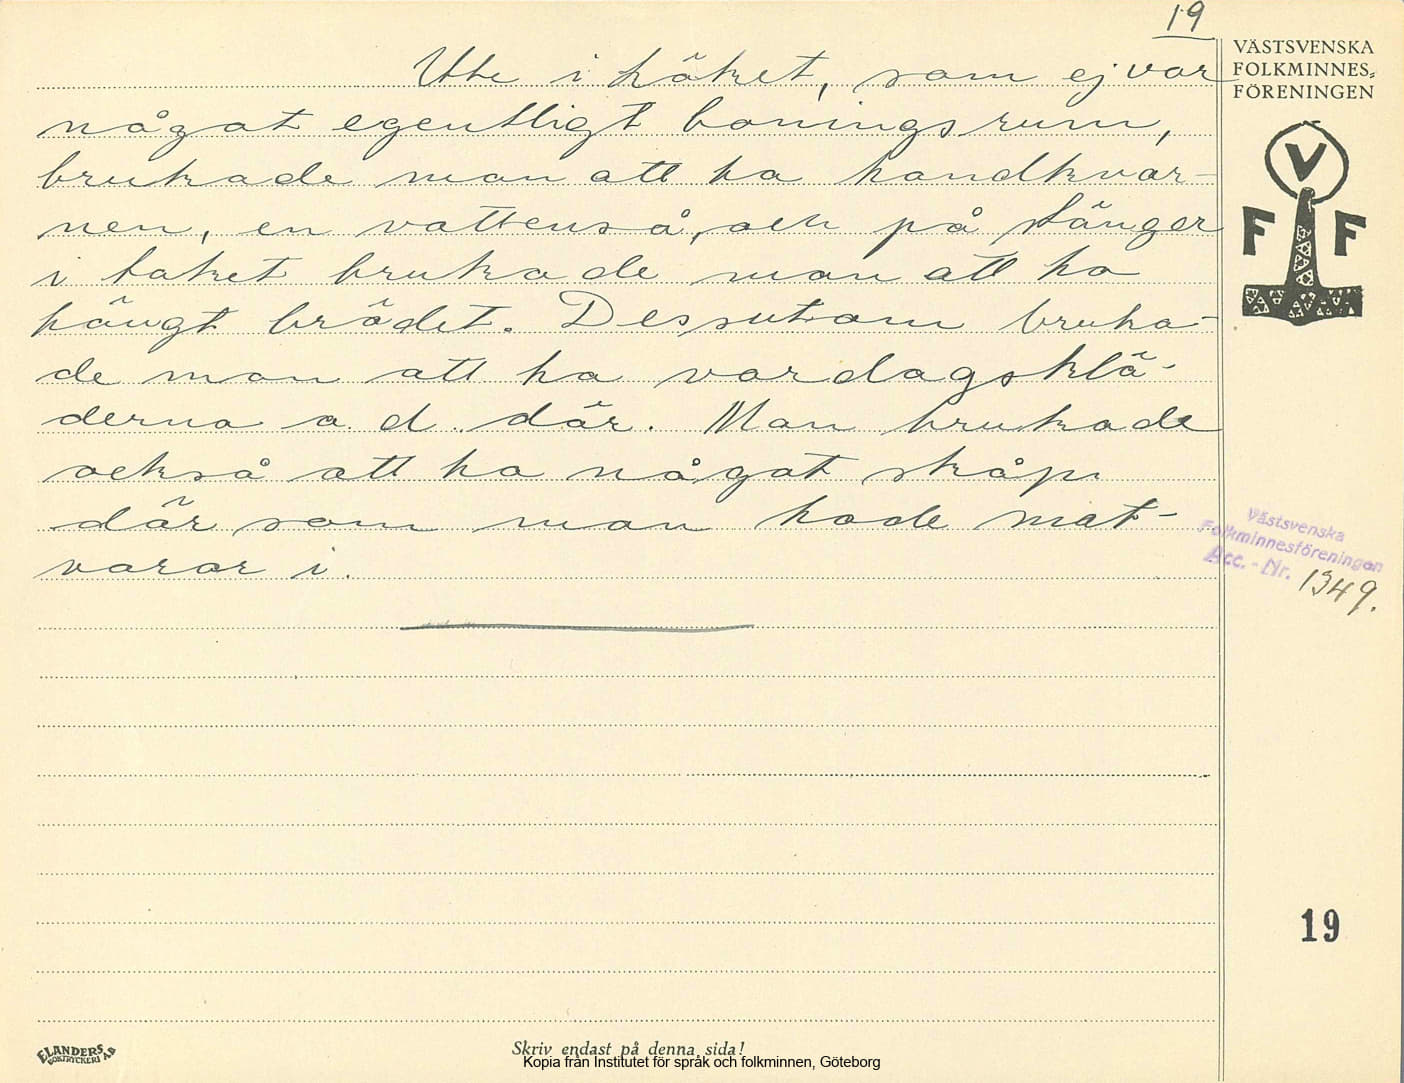 19
VÄSTSVENSKA
FOLKMINNES=
FÖRENINGEN
V
F F
Ute i köket, som ej var
något egentligt boningsrum,
brukade man att ha handkvar-
nen, en vattenså, och på stänger
i taket brukade man att ha
hängt brödet. Dessutom bruka-
de man att ha vardagsklä-
derna o. d. där. Man brukade
också att ha något skåp
där som man hade mat-
varor i.
Västsvenska
Folkminnesföreningen
Acc. - Nr. 1349.
19
ELANDERS
BOKTRYCKERI AB
Skriv endast på denna sida!
Kopia från Institutet för språk och folkminnen, Göteborg